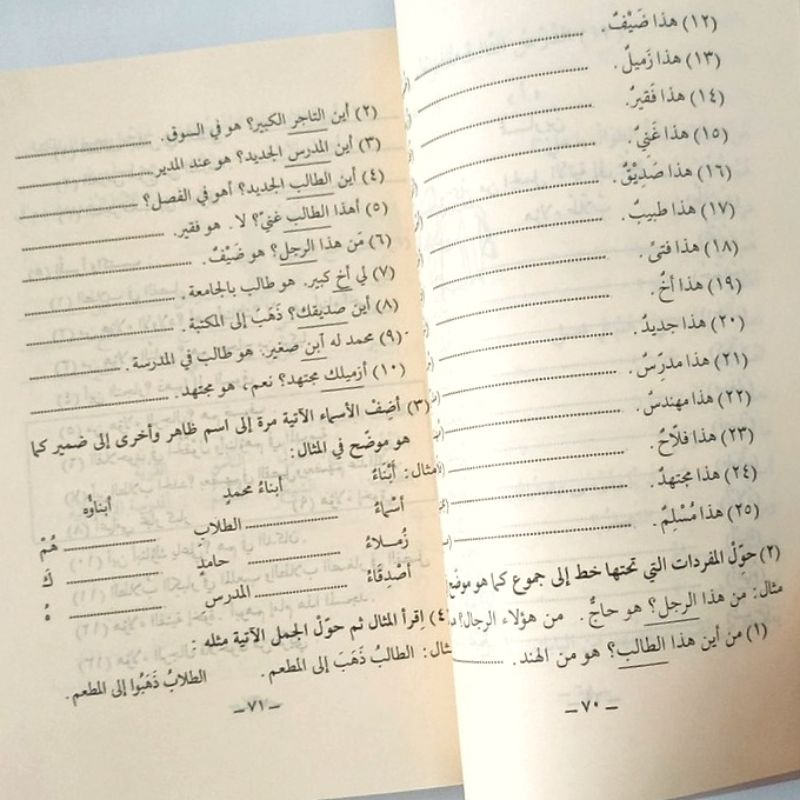 (١٢) هذا ضَيْفٌ.
(١٣) هذا زَميلٌ.
(١٤) هذا فَقيرٌ.
(١٥) هذا غَنيٌّ.
(١٦) هذا صَدِيْقٌ.
(١٧) هذا طبيبٌ.
(١٨) هذا فتىً.
(١٩) هذا أخٌ.
(٢٠) هذا جديدٌ.
(٢١) هذا مدرِّسٌ.
(٢٢) هذا مهندسٌ.
(٢٣) هذا فلّاحٌ.
(٢٤) هذا مجتهدٌ.
(٢٥) هذا مُسْلِمٌ.
(٢) حوّلْ المفردات التي تحتها خط إلى جموع كما هو موضّح
مثال: مَن هذا الرجل؟ هو حاجٌّ. من هؤلاء الرجال؟
(١) من أين هذا الطالب؟ هو من الهند.
— ٧٠ —
(٢) أين التاجر الكبير؟ هو في السوق.
(٣) أين المدرس الجديد؟ هو عند المدير
(٤) أين الطالب الجديد؟ أهو في الفصل؟
(٥) أهذا الطالب غنيٌّ؟ لا. هو فقير.
(٦) مَن هذا الرجل؟ هو ضَيْفٌ.
(٧) لي أخ كبير. هو طالب بالجامعة.
(٨) أين صديقك؟ ذَهَبَ إلى المكتبة.
(٩) محمد له ابن صغير. هو طالب في المدرسة.
(١٠) أزميلك مجتهد؟ نعم، هو مجتهد.
(٣) أضِفْ الأسماء الآتية مرة إلى اسم ظاهر وأخرى إلى ضمير كما
هو موضّح في المثال:
مثال: أبْنَاءُ أبناءُ محمدٍ أبناؤه
أسْمَاءُ الطلابِ هُمْ
زُمـلاءُ حامدٍ كَ
أصْدِقَاءُ المدرس هُ
(٤) اِقرأ المثال ثم حوّلْ الجمل الآتية مثله:
مثال: الطالبُ ذَهَبَ إلى المطعم. الطلابُ ذَهَبُوا إلى المطعم.
— ٧١ —